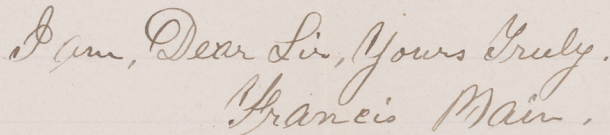 I am, Dear Sir, Yours Truly.
Francis Bain.